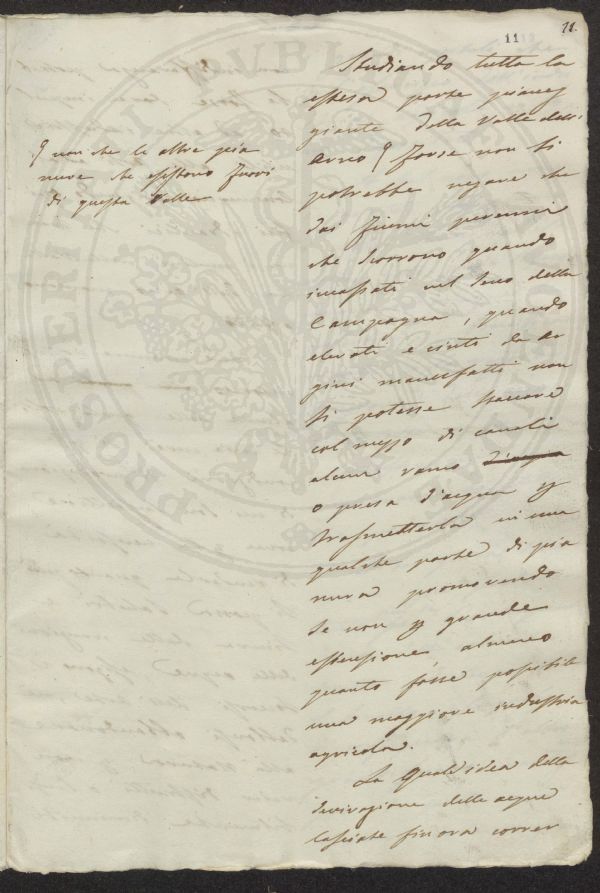 11
71.
Studiando tutta la
estesa parte pianeg
giante della Valle dell'
Arno forse non si
potrebbe negare che
dai fiumi perenni
che scorrono quando
incassati nel seno della
Campagna, quando
elevati e cinti da ar
gini manufatti non
si potesse staccare
col mezzo di canali
alcun ramo d'acqua
o presa d'acqua p
trasmetterla in una
qualche parte di pia
nura promovendo
se non p grande
estensione, almeno
quanto fosse possibile
una maggiore industria
agricola.
La quale idea della
derivazione delle acque
lasciate finora correr
non che le altre pia
nure che esistono fuori
di questa Valle
PROSPERITATI PUBLICAE AUGENDAE